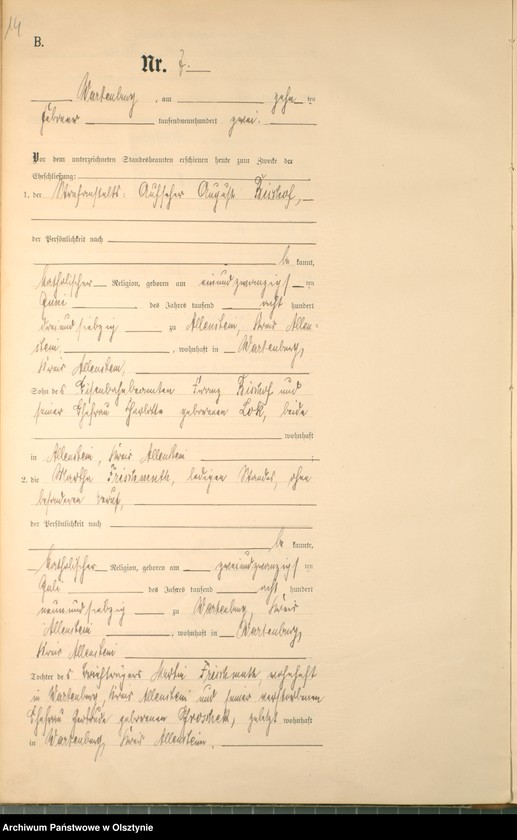 14
B.
Nr. 7.
Wartenburg, am zehn ten
Februar tausendneunhundert zwei.
Vor dem unterzeichneten Standesbeamten erschienen heute zum Zwecke der
Eheschließung:
1. der Strafanstalts-Aufseher August
der Persönlichkeit nach
be kannt,
katholischer Religion, geboren am einundzwanzigs ten
Juni des Jahres tausend acht hundert
dreiundsiebzig zu Allenstein, Kreis Allen-
stein, wohnhaft in Wartenburg,
Kreis Allenstein,
Sohn des Eisenbahnbeamten Franz und
seiner Ehefrau Charlotte geborenen beide
wohnhaft
in Allenstein, Kreis Allenstein
2. die Martha Frischmuth, ledigen Standes, ohne
besonderen Beruf,
der Persönlichkeit nach
be kannte,
katholischer Religion, geboren am zweiundzwanzigs ten
Juli des Jahres tausend acht hundert
neunundsiebzig zu Wartenburg, Kreis
Allenstein, wohnhaft in Wartenburg,
Kreis Allenstein
Tochter des Martin Frischmuth, wohnhaft
in Wartenburg Kreis Allenstein und seiner verstorbenen
Ehefrau Gertrude geborenen zuletzt wohnhaft
in Wartenburg, Kreis Allenstein.
Archiwum Państwowe w Olsztynie